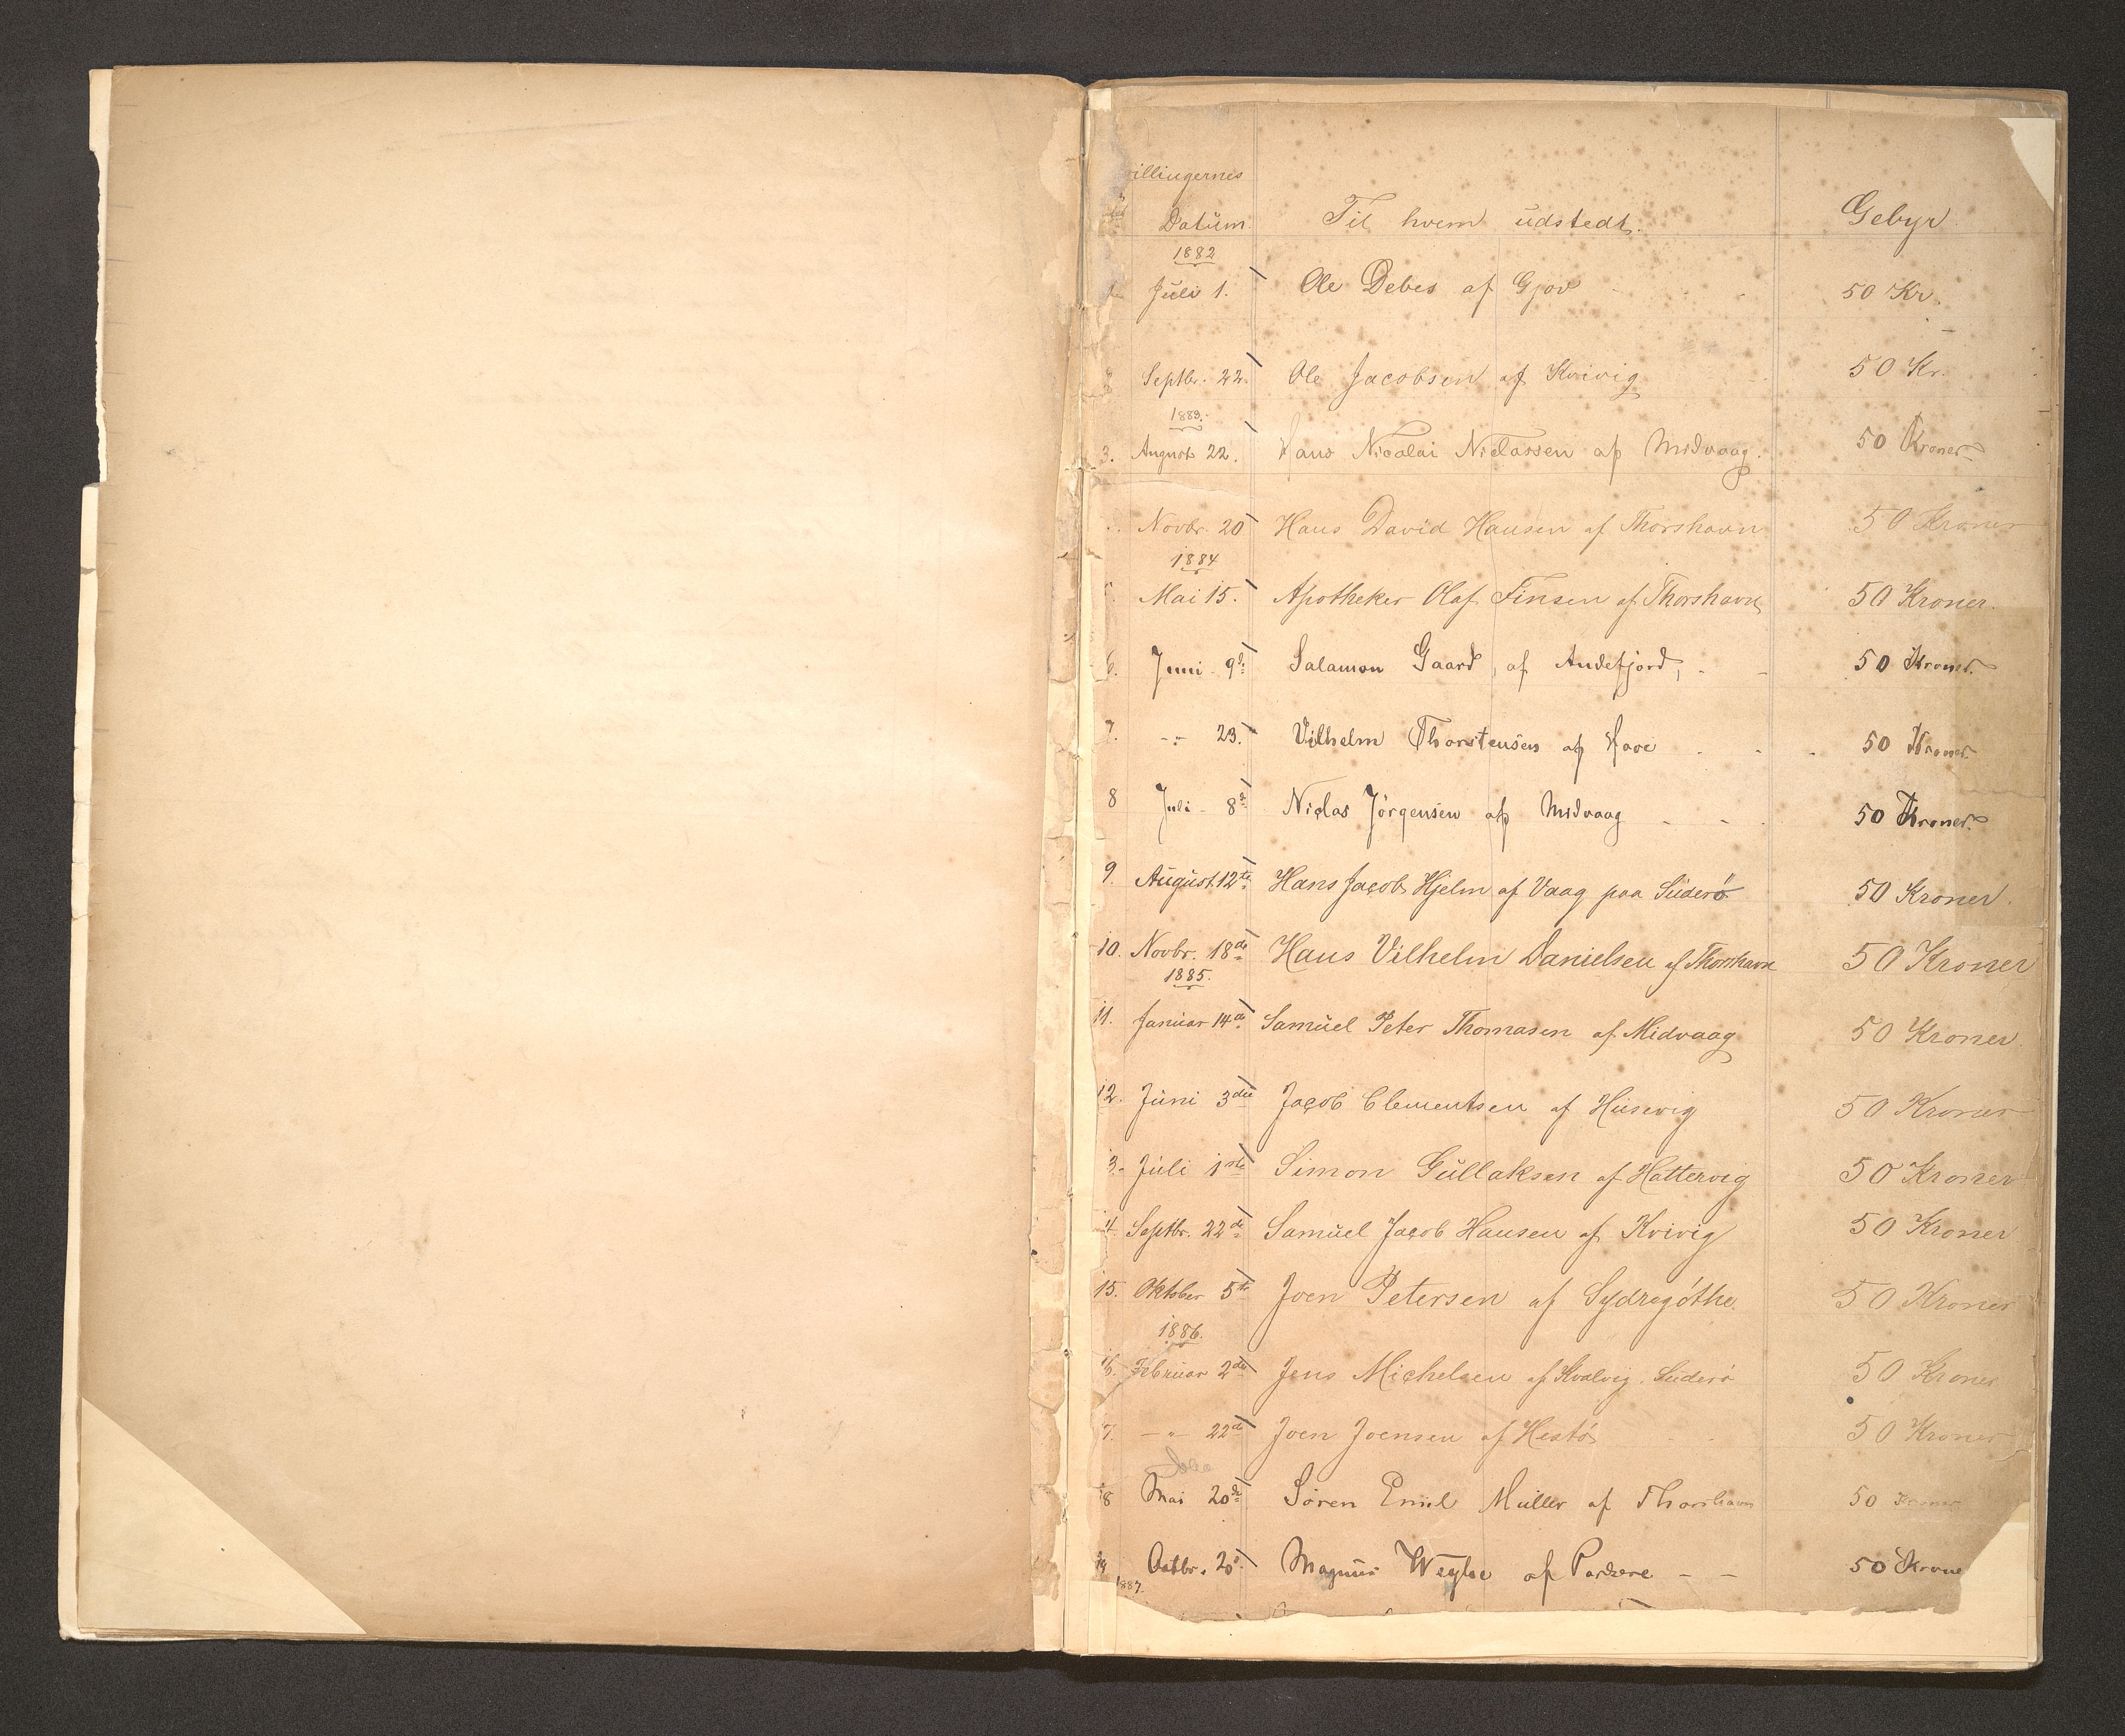 illingernes
Datum. Til hvem udstedt. Gebyr
1882
Juli 1. Ole Debes af Gjov 50 Kr.
Septbr. 22. Ole Jacobsen af Kvivig 50 Kr.
1883.
3. August 22. Hans Nicolai Niclassen af Midvaag. 50 Kroner
Novbr. 20 Hans David Hansen af Thorshavn 50 Kroner
1884
Mai 15. Apotheker Olaf Finsen af Thorshavn 50 Kroner.
6. Juni 9d. Salamon Gaard, af Andefjord, - - 50 Kroner.
7. -"- 23. Vilhelm Thorstensen af Hove - - - 50 Kroner
8 Juli - 8d. Niclas Jörgensen af Midvaag - - - 50 Kroner.
9. August. 12te Hans Jacob Hjelm af Vaag paa Süderö 50 Kroner.
10. Novbr. 18de Hans Vilhelm Danielsen af Thorshavn 50 Kroner
1885.
11. Januar 14de Samuel Peter Thomasen af Midvaag 50 Kroner.
12. Juni 3die Jacob Clementsen af Husevig 50 Kroner
3. Juli 1ste Simon Gullaksen af Hattervig 50 Kroner
4. Septbr. 22de Samuel Jacob Hansen af Kvivig 50 Kroner
15. Oktober 5te Joen Petersen af Sydregöthe 50 Kroner
1886.
16. Februar 2den Jens Michelsen af Kvalvig. Suderö 50 Kroner
7. -"- 22de Joen Joensen af Hestö 50 Kroner
18 Mai 20de Sören Emil Müller af Thorshavn 50 Kroner
19 Octbr. 20. Magnus Weyhe af Porkere - - 50 Krone
1887.